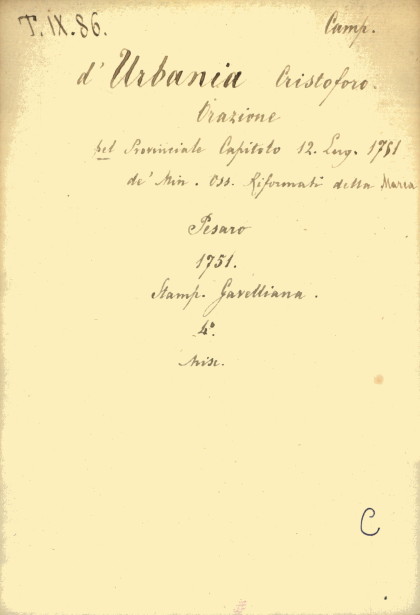 T. IX. 86.
Camp.
d' Urbania Cristoforo.
Orazione
pel Provinciale Capitolo 12. Lug. 1751
de' Min. Oss. Riformati della Marca
Pesaro
1751.
Stamp. Gavelliana.
4º.
Misc.
C